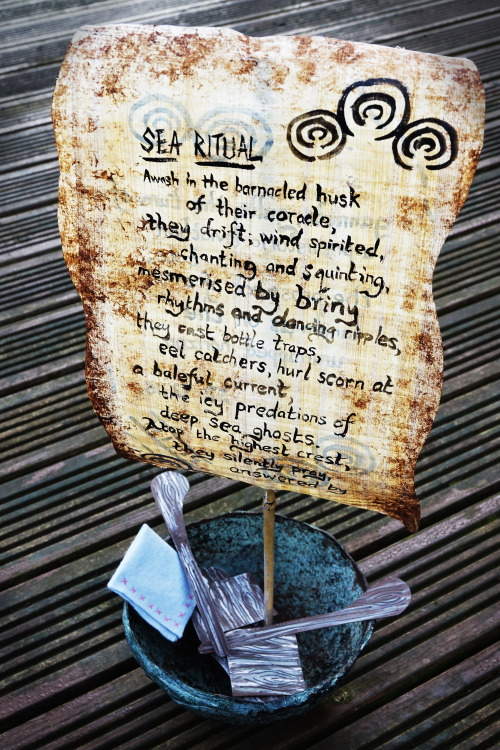 SEA RITUAL
Awash in the barnacled husk
of their coracle,
they drift; wind spirited,
chanting and squinting,
mesmerised by briny
rhythms and dancing ripples,
they cast bottle traps,
eel catchers, hurl scorn at
a baleful current,
the icy predations of
deep sea ghosts.
Atop the highest crest,
they silently pray,
answered by